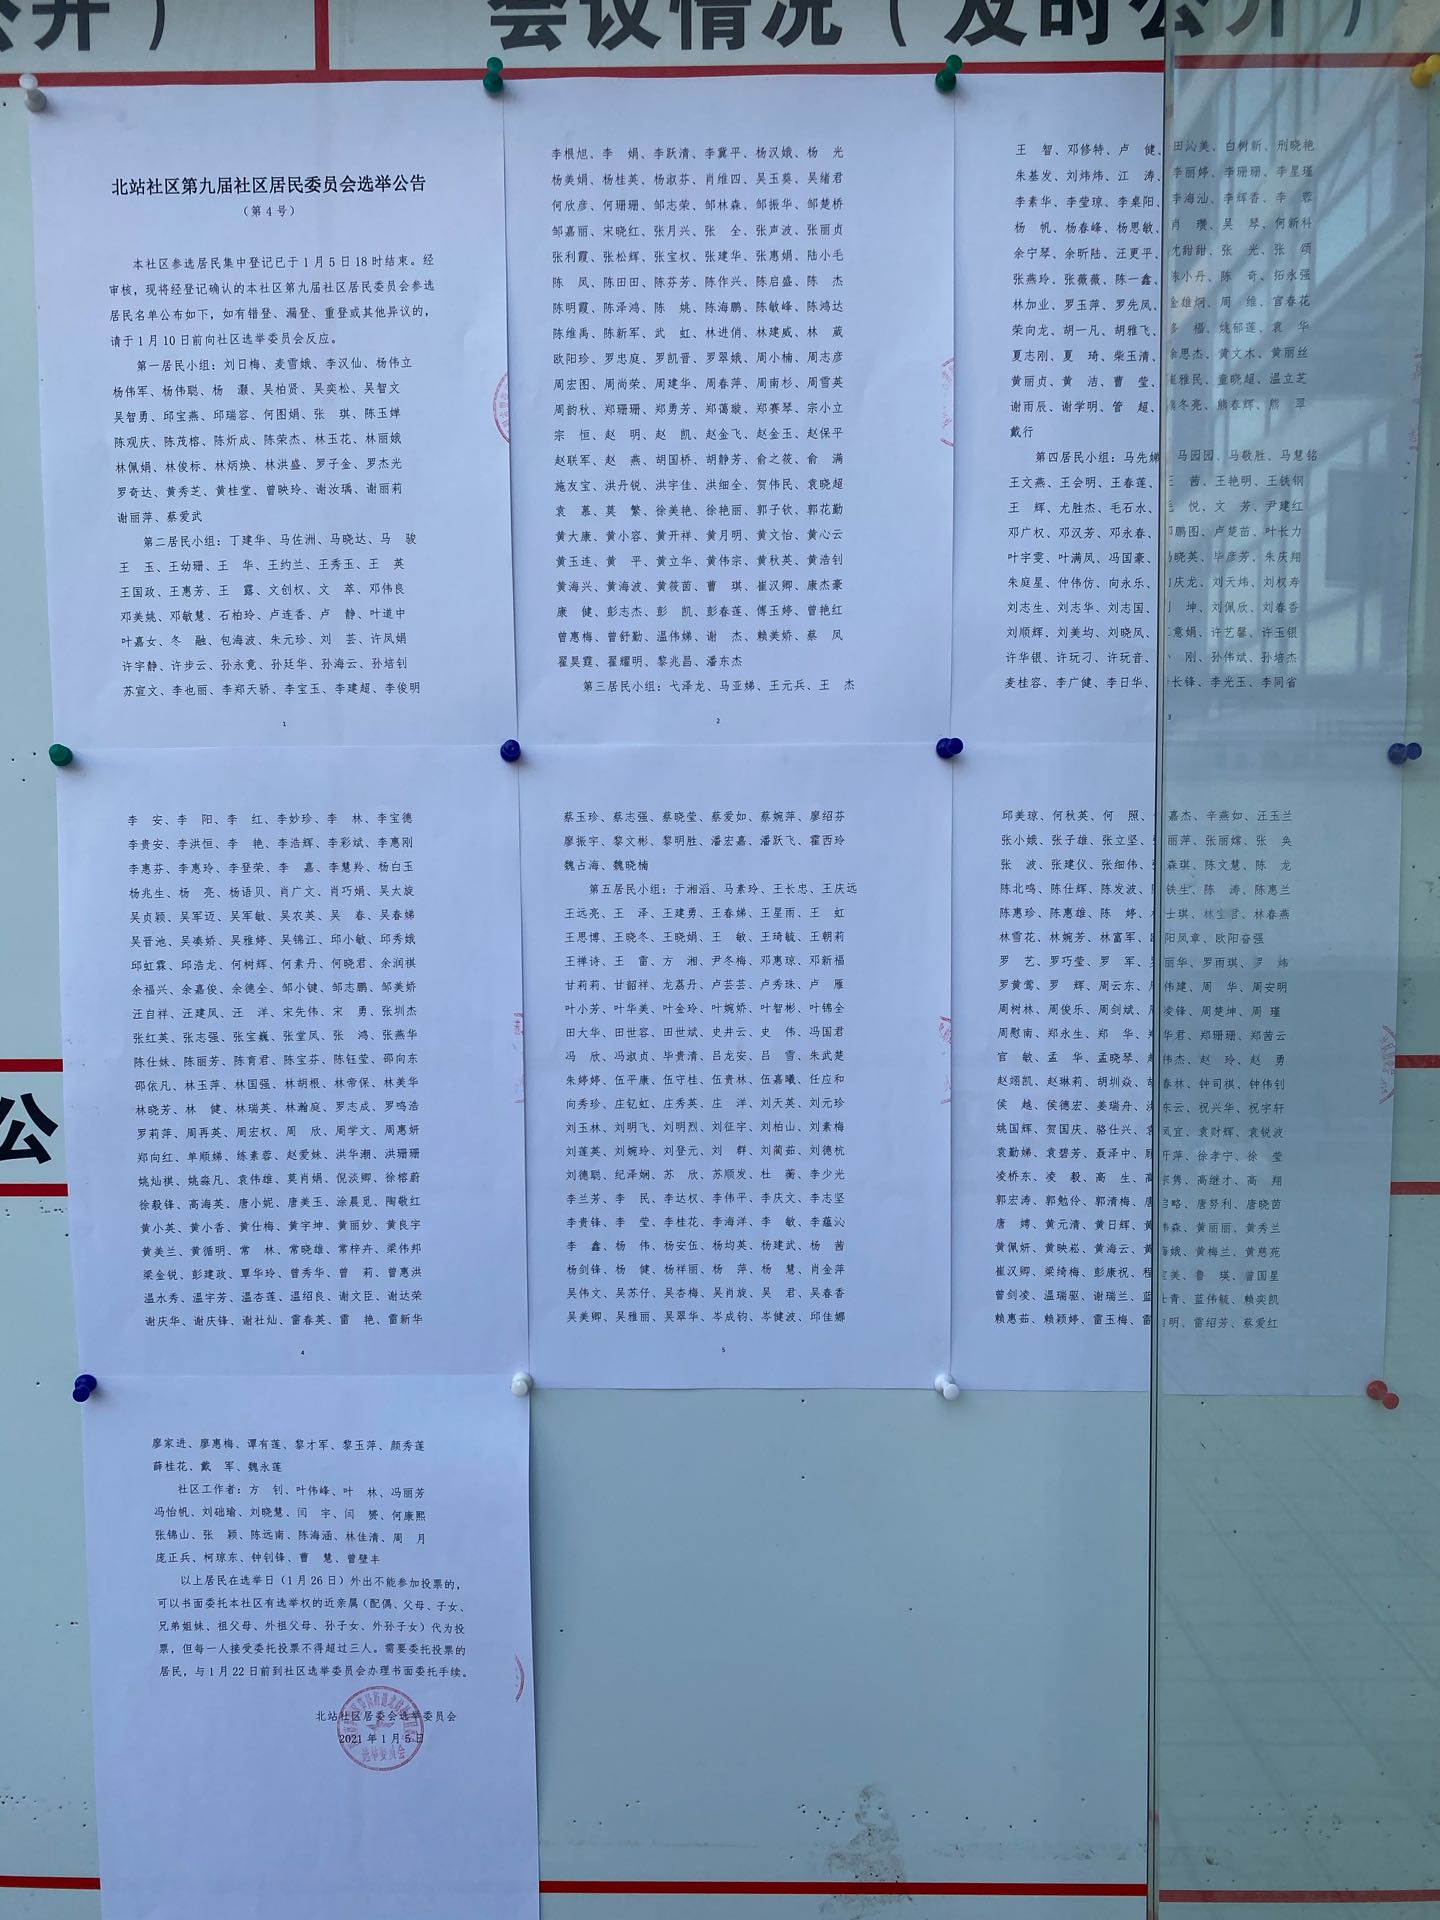 公开）
会议情况（及时公开）
北站社区第九届社区居民委员会选举公告
（第 4 号）
本社区参选居民集中登记已于 1 月 5 日 18 时结束。经
审核，现将经登记确认的本社区第九届社区居民委员会参选
居民名单公布如下，如有错登、漏登、重登或其他异议的，
请于 1 月 10 日前向社区选举委员会反应。
第一居民小组：刘日梅、麦雪娥、李汉仙、杨伟立
杨伟军、杨伟聪、杨　灏、吴柏贤、吴奕松、吴智文
吴智勇、邱宝燕、邱瑞容、何图娟、张　琪、陈玉婵
陈观庆、陈茂榕、陈炘成、陈荣杰、林玉花、林丽娥
林佩娟、林俊标、林炳焕、林洪盛、罗子金、罗杰光
罗奇达、黄秀芝、黄桂堂、曾映玲、谢汝瑀、谢丽莉
谢丽萍、蔡爱武
第二居民小组：丁建华、马佐洲、马晓达、马　骏
王　玉、王幼珊、王　华、王约兰、王秀玉、王　英
王国政、王惠芳、王　露、文创权、文　萃、邓伟良
邓美姚、邓敏慧、石柏玲、卢连香、卢　静、叶道中
叶嘉女、冬　融、包海波、朱元珍、刘　芸、许凤娟
许宇静、许步云、孙永竟、孙廷华、孙海云、孙培钊
苏宣文、李也丽、李郑天骄、李宝玉、李建超、李俊明
1
李根旭、李　娟、李跃清、李冀平、杨汉娥、杨　光
杨美娟、杨桂英、杨淑芬、肖维四、吴玉葵、吴绪君
何欣彦、何珊珊、邹志荣、邹林森、邹振华、邹楚桥
邹嘉丽、宋晓红、张月兴、张　全、张声波、张丽贞
张利霞、张松辉、张宝权、张建华、张惠娟、陆小毛
陈　凤、陈田田、陈芬芳、陈作兴、陈启盛、陈　杰
陈明霞、陈泽鸿、陈　姚、陈海鹏、陈敏峰、陈鸿达
陈维禹、陈新军、武　虹、林进俏、林建威、林　葳
欧阳珍、罗忠庭、罗凯晋、罗翠娥、周小楠、周志彦
周宏图、周尚荣、周建华、周春萍、周南杉、周雪英
周韵秋、郑珊珊、郑勇芳、郑蔼璇、郑赛琴、宗小立
宗　恒、赵　明、赵　凯、赵金飞、赵金玉、赵保平
赵联军、赵　燕、胡国桥、胡静芳、俞之筱、俞　满
施友宝、洪丹锐、洪宇佳、洪细全、贺伟民、袁晓超
袁　慕、莫　繁、徐美艳、徐艳丽、郭子钦、郭花勤
黄大康、黄小容、黄开祥、黄月明、黄文怡、黄心云
黄玉连、黄　平、黄立华、黄伟宗、黄秋英、黄浩钊
黄海兴、黄海波、黄筱茵、曹　琪、崔汉卿、康杰豪
康　健、彭志杰、彭　凯、彭春莲、傅玉婷、曾艳红
曾惠梅、曾舒勤、温伟娣、谢　杰、赖美娇、蔡　凤
翟昊霆、翟耀明、黎兆昌、潘东杰
第三居民小组：弋泽龙、马亚娣、王元兵、王　杰
2
王　智、邓修特、卢　健、田沁美、白树新、刑晓艳
朱基发、刘炜炜、江　涛、李丽婷、李珊珊、李星瑾
李素华、李莹琼、李桌阳、李海汕、李辉香、李　蓉
杨　帆、杨春峰、杨思敏、肖　瓒、吴　琴、何新科
余宁琴、余昕陆、汪更平、沈甜甜、张　光、张　颂
张燕玲、张薇薇、陈一鑫、陈小丹、陈　奇、拓永强
林加业、罗玉萍、罗先凤、金雄炯、周　维、官春花
荣向龙、胡一凡、胡雅飞、　福、姚郁莲、袁　华
夏志刚、夏　琦、柴玉清、徐思杰、黄文木、黄丽丝
黄丽贞、黄　洁、曹　莹、崔雅民、童晓超、温立芝
谢雨辰、谢学明、管　超、熊冬亮、熊春辉、熊　翠
戴行
第四居民小组：马先娣、马园园、马敬胜、马慧铭
王文燕、王会明、王春莲、王　茜、王艳明、王铁钢
王　辉、尤胜杰、毛石水、毛　悦、文　芳、尹建红
邓广权、邓汉芳、邓永春、邓鹏图、卢楚苗、叶长力
叶宇雯、叶满凤、冯国豪、冯晓英、毕彦芳、朱庆翔
朱庭星、仲伟仿、向永乐、庆龙、刘天炜、刘权寿
刘志生、刘志华、刘志国、刘　坤、刘佩欣、刘春香
刘顺辉、刘美均、刘晓凤、意娟、许艺馨、许玉银
许华银、许玩刁、许玩音、　刚、孙伟斌、孙培杰
麦桂容、李广健、李日华、李长锋、李光玉、李同省
3
李　安、李　阳、李　红、李妙珍、李　林、李宝德
李贵安、李洪恒、李　艳、李浩辉、李彩斌、李惠刚
李惠芬、李惠玲、李登荣、李　嘉、李慧羚、杨白玉
杨兆生、杨　亮、杨语贝、肖广文、肖巧娟、吴太旋
吴贞颖、吴军迈、吴军敏、吴农英、吴　春、吴春娣
吴晋池、吴凑娇、吴雅婷、吴锦江、邱小敏、邱秀娥
邱虹霖、邱浩龙、何树辉、何素丹、何晓君、余润祺
余福兴、余嘉俊、余德全、邹小键、邹志鹏、邹美娇
汪自祥、汪建凤、汪　洋、宋先伟、宋　勇、张圳杰
张红英、张志强、张宝巍、张堂凤、张　鸿、张燕华
陈仕妹、陈丽芳、陈育君、陈宝芬、陈钰莹、邵向东
邵依凡、林玉萍、林国强、林胡根、林帝保、林美华
林晓芳、林　健、林瑞英、林瀚庭、罗志成、罗鸣浩
罗莉萍、周再英、周宏权、周　欣、周学文、周惠妍
郑向红、单顺娣、练素蓉、赵爱妹、洪华潮、洪珊珊
姚灿祺、姚淼凡、袁伟雄、莫肖娟、倪淡卿、徐榕蔚
徐毅锋、高海英、唐小妮、唐美玉、涂晨觅、陶敬红
黄小英、黄小香、黄仕梅、黄宇坤、黄丽妙、黄良宇
黄美兰、黄循明、常　林、常晓雄、常梓卉、梁伟邦
梁金锐、彭建政、覃华玲、曾秀华、曾　莉、曾惠洪
温水秀、温宇芳、温杏莲、温绍良、谢文臣、谢达荣
谢庆华、谢庆锋、谢社灿、雷春英、雷　艳、雷新华
4
蔡玉珍、蔡志强、蔡晓莹、蔡爱如、蔡婉萍、廖绍芬
廖振宇、黎文彬、黎明胜、潘宏嘉、潘跃飞、霍西玲
魏占海、魏晓楠
第五居民小组：于湘滔、马素玲、王长忠、王庆远
王远亮、王　泽、王建勇、王春娣、王星雨、王　虹
王思博、王晓冬、王晓娟、王　敏、王琦毓、王朝莉
王禅诗、王　雷、方　湘、尹冬梅、邓惠琼、邓新福
甘莉莉、甘韶祥、龙荔丹、卢芸芸、卢秀珠、卢　雁
叶小芳、叶华美、叶金玲、叶婉娇、叶智彬、叶锦全
田大华、田世容、田世斌、史井云、史　伟、冯国君
冯　欣、冯淑贞、毕贵清、吕龙安、吕　雪、朱武楚
朱婷婷、伍平康、伍守桂、伍贵林、伍嘉曦、任应和
向秀珍、庄钇虹、庄秀英、庄　洋、刘天英、刘元珍
刘玉林、刘明飞、刘明烈、刘征宇、刘柏山、刘素梅
刘莲英、刘婉玲、刘登元、刘　群、刘蔺茹、刘德杭
刘德聪、纪泽娴、苏　欣、苏顺发、杜　蘅、李少光
李兰芳、李　民、李达权、李伟平、李庆文、李志坚
李贵锋、李　莹、李桂花、李海洋、李　敏、李蕴沁
李　鑫、杨　伟、杨安伍、杨均英、杨建武、杨　茜
杨剑锋、杨　健、杨祥丽、杨　萍、杨　慧、肖金萍
吴伟文、吴苏仔、吴杏梅、吴肖旋、吴　君、吴春香
吴美卿、吴雅丽、吴翠华、岑成钧、岑健波、邱佳娜
5
邱美琼、何秋英、何　照、嘉杰、辛燕如、汪玉兰
张小娥、张子雄、张立坚、丽萍、张丽嫦、张　奂
张　波、张建仪、张细伟、森琪、陈文慧、陈　龙
陈北鸣、陈仕辉、陈发波、铁生、陈　涛、陈惠兰
陈惠珍、陈惠雄、陈　婷、士琪、林宝君、林春燕
林雪花、林婉芳、林富军、欧阳凤章、欧阳奋强
罗　艺、罗巧莹、罗　军、罗丽华、罗雨琪、罗　炜
罗黄莺、罗　辉、周云东、周伟建、周　华、周安明
周树林、周俊乐、周剑斌、周凌锋、周楚坤、周　瑾
周慰南、郑永生、郑　华、郑华君、郑珊珊、郑茜云
官　敏、孟　华、孟晓琴、赵伟杰、赵　玲、赵　勇
赵翊凯、赵琳莉、胡圳焱、胡春林、钟司祺、钟伟钊
侯　越、侯德宏、姜瑞舟、东云、祝兴华、祝宇轩
姚国辉、贺国庆、骆仕兴、袁凤宜、袁财辉、袁锐波
袁勤娣、袁碧芳、聂泽中、萍、徐孝宁、徐　莹
凌桥东、凌　毅、高　生、高宗隽、高继才、高　翔
郭宏涛、郭勉伶、郭清梅、启略、唐努利、唐晓茵
唐　娉、黄元清、黄日辉、黄伟森、黄丽丽、黄秀兰
黄佩妍、黄映崧、黄海云、黄海娥、黄梅兰、黄慈苑
崔汉卿、梁绮梅、彭康祝、程宝美、鲁　瑛、曾国星
曾剑凌、温瑞驱、谢瑞兰、蓝仕青、蓝伟毓、赖奕凯
赖惠茹、赖颖婷、雷玉梅、雷明、雷绍芳、蔡爱红
廖家进、廖惠梅、谭有莲、黎才军、黎玉萍、颜秀莲
薛桂花、戴　军、魏永莲
社区工作者：方　钊、叶伟峰、叶　林、冯丽芳
冯怡帆、刘础瑜、刘晓慧、闫　宇、闫　赟、何康熙
张锦山、张　颖、陈远南、陈海涵、林佳清、周　月
庞正兵、柯琼东、钟钊锋、曹　慧、曾壁丰
以上居民在选举日（1 月 26 日）外出不能参加投票的，
可以书面委托本社区有选举权的近亲属（配偶、父母、子女、
兄弟姐妹、祖父母、外祖父母、孙子女、外孙子女）代为投
票，但每一人接受委托投票不得超过三人。需要委托投票的
居民，与 1 月 22 日前到社区选举委员会办理书面委托手续。
北站社区居委会选举委员会
2021 年 1 月 5 日
选举委员会
公